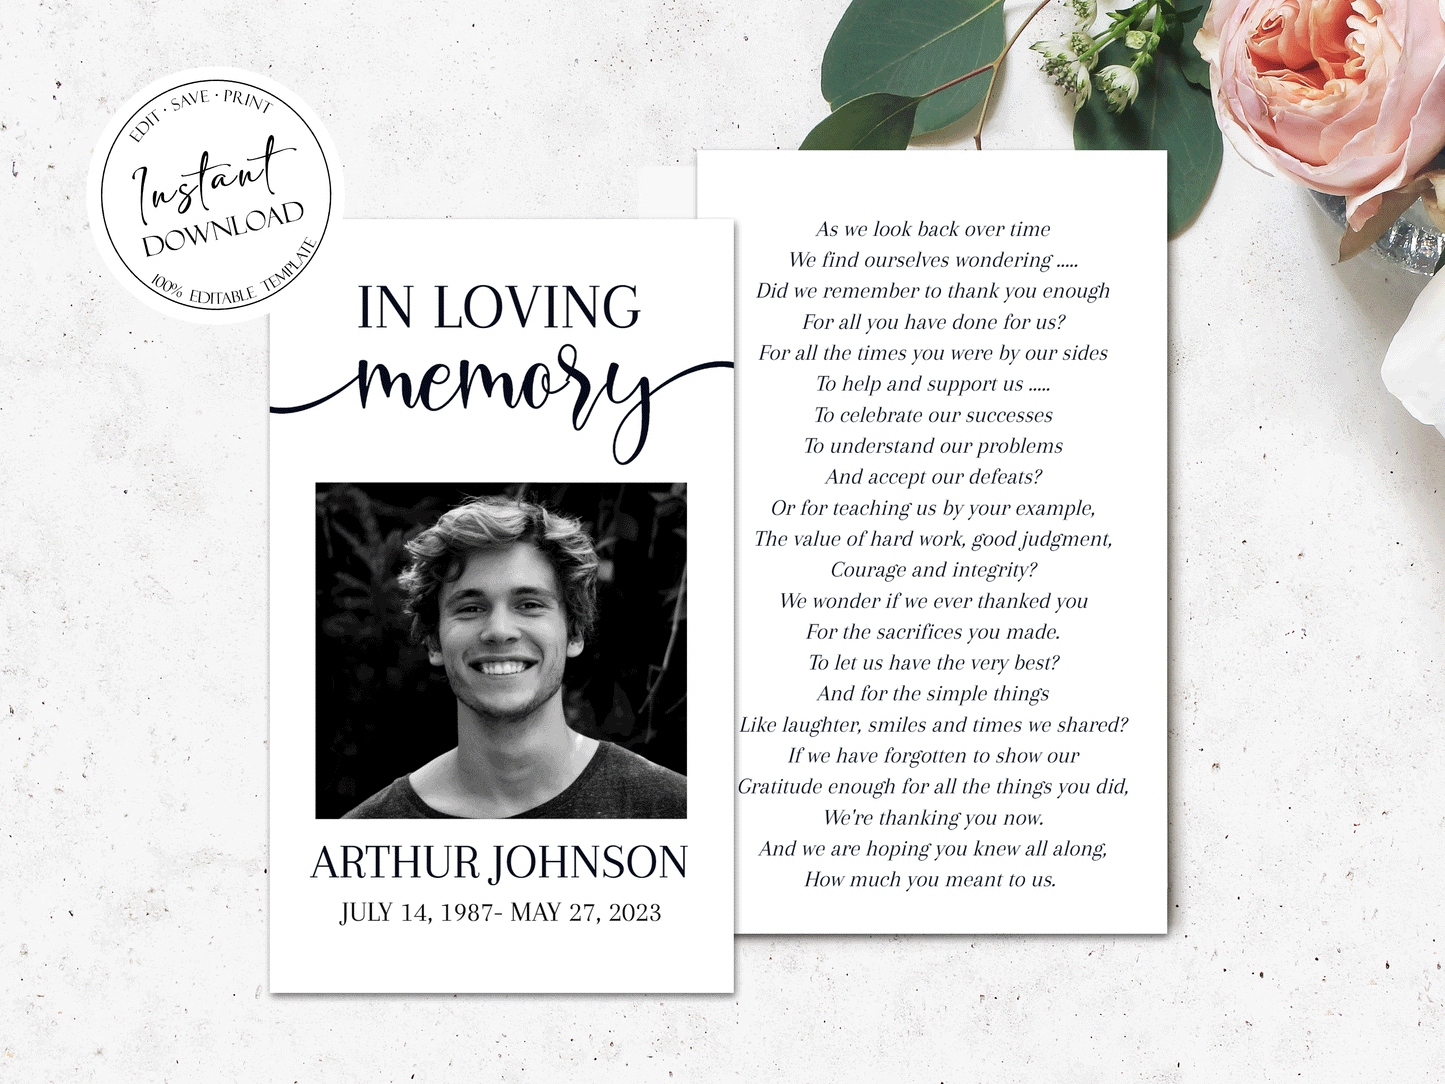 EDIT • SAVE • PRINT
Instant
DOWNLOAD
100% EDITABLE TEMPLATE
IN LOVING
memory
ARTHUR JOHNSON
JULY 14, 1987- MAY 27, 2023
As we look back over time
We find ourselves wondering .....
Did we remember to thank you enough
For all you have done for us?
For all the times you were by our sides
To help and support us .....
To celebrate our successes
To understand our problems
And accept our defeats?
Or for teaching us by your example,
The value of hard work, good judgment,
Courage and integrity?
We wonder if we ever thanked you
For the sacrifices you made.
To let us have the very best?
And for the simple things
Like laughter, smiles and times we shared?
If we have forgotten to show our
Gratitude enough for all the things you did,
We're thanking you now.
And we are hoping you knew all along,
How much you meant to us.